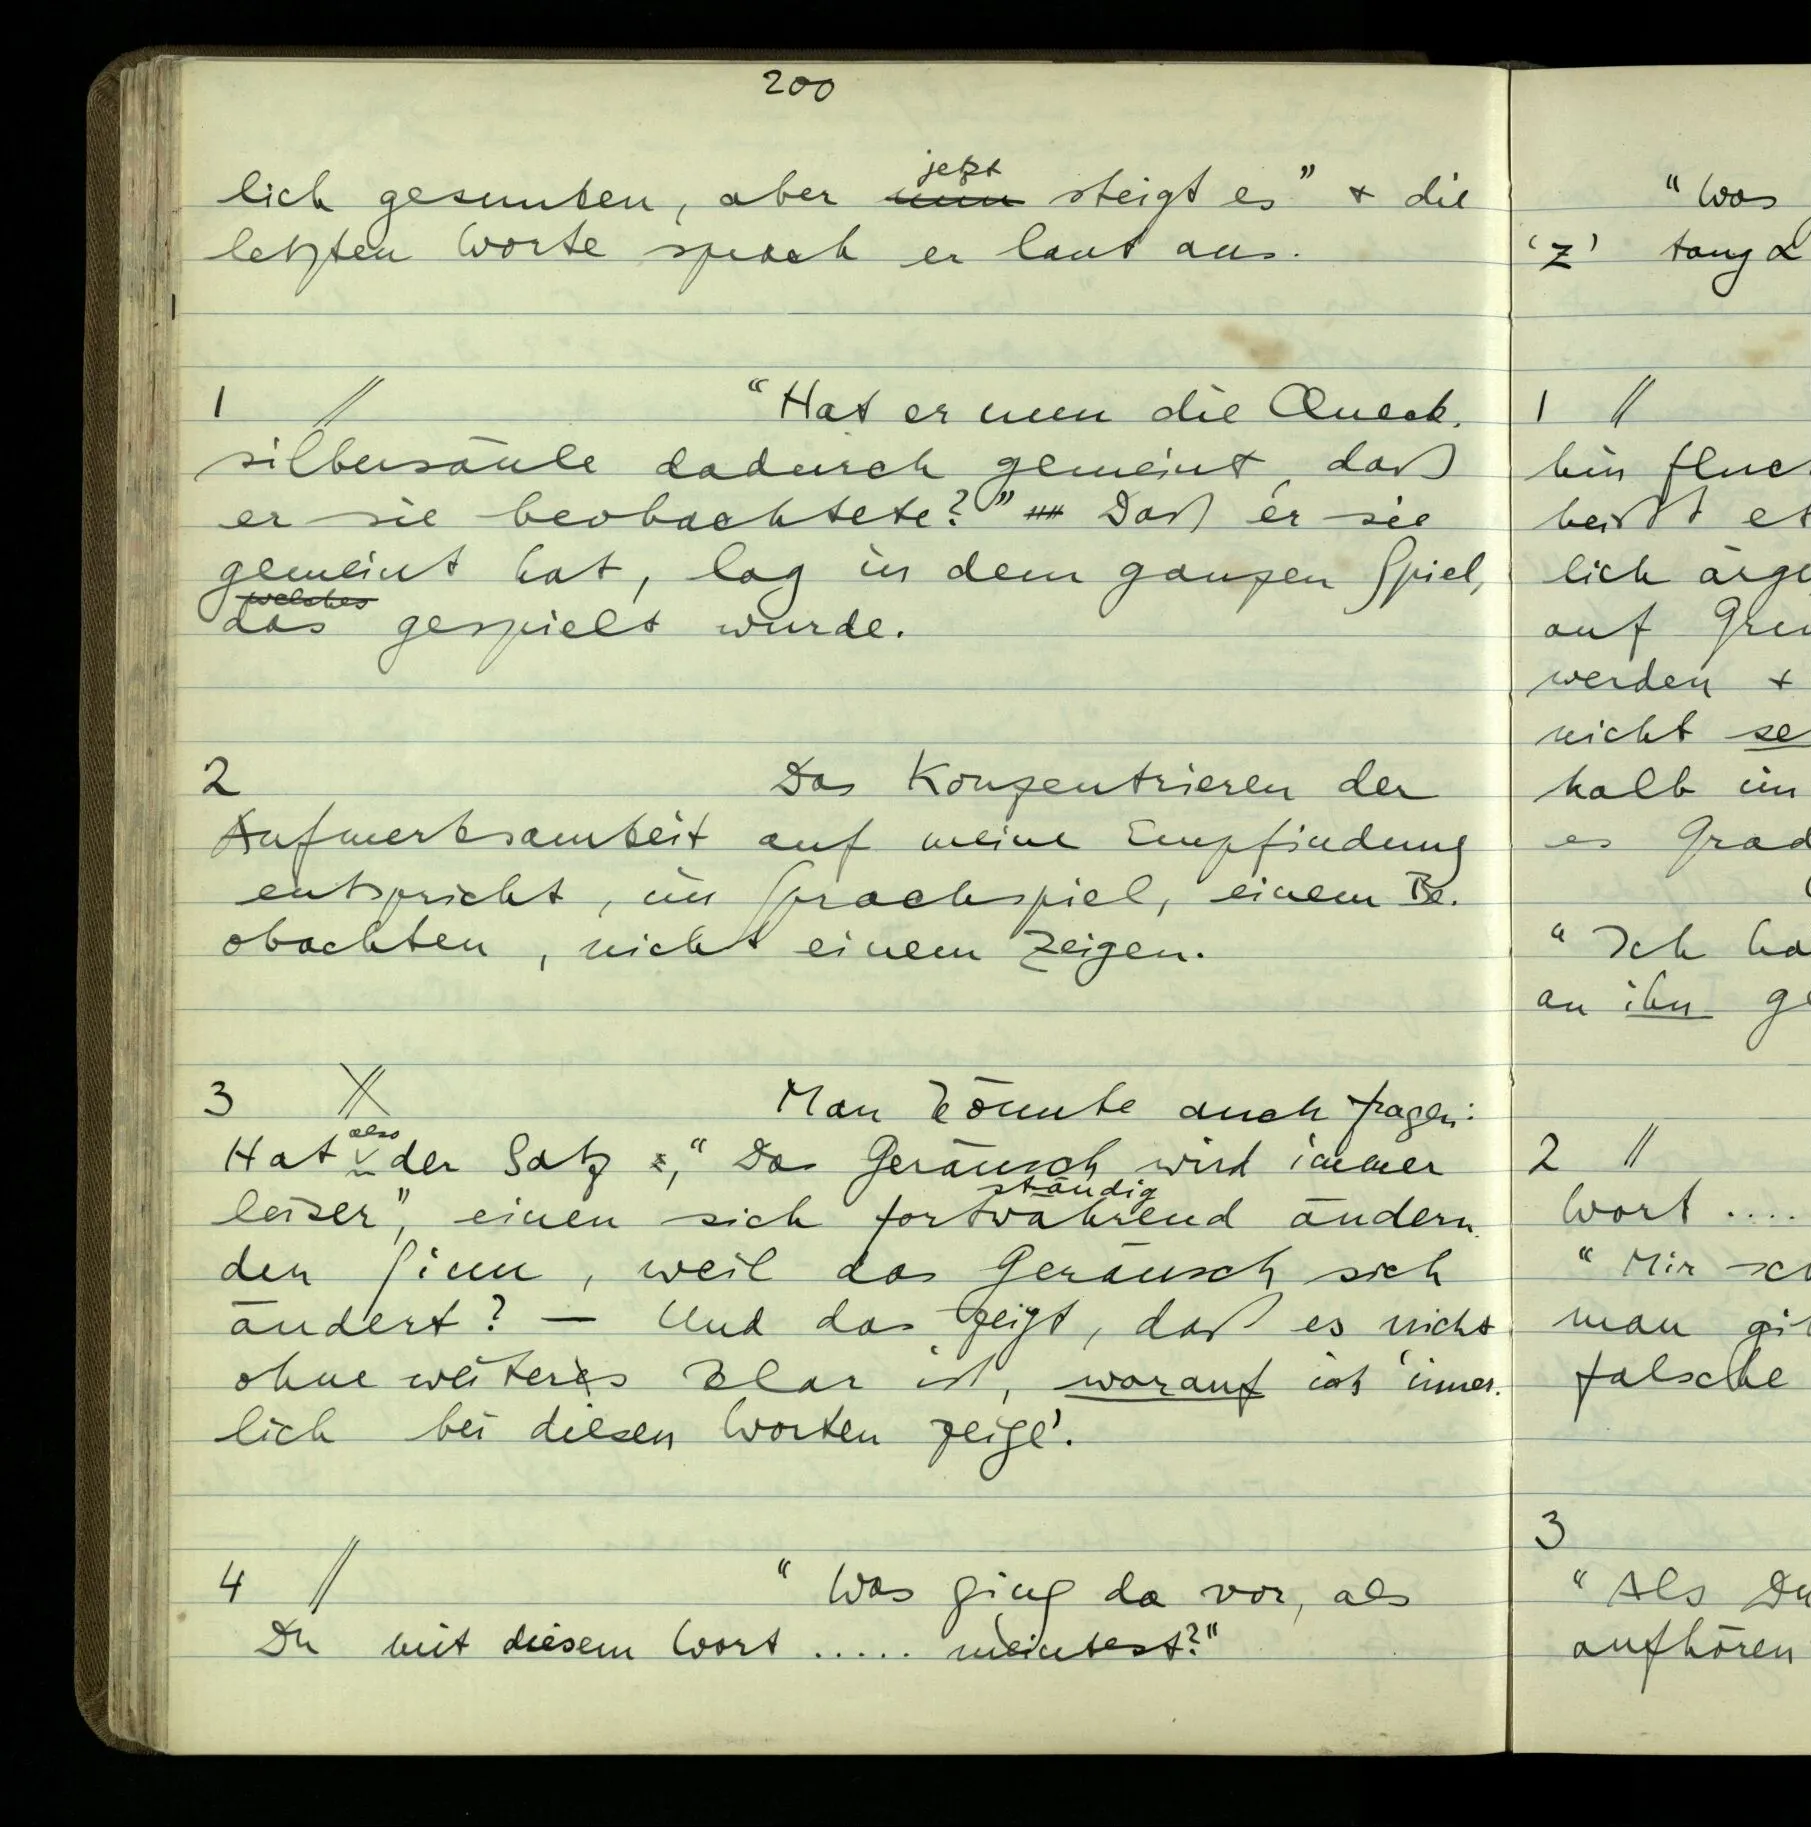 200
lich gesunken, aber nun jetzt steigt es" & die
letzten Worte sprach er laut aus.
1 // "Hat er nun die Queck-
silbersäule dadurch gemeint, daß
er sie beobachtete?" Daß er sie
gemeint hat, lag in dem ganzen Spiel,
welches
das gespielt wurde.
2 Das Konzentrieren der
Aufmerksamkeit auf meine Empfindung
entspricht, im Sprachspiel, einem Be-
obachten, nicht einem Zeigen.
3 Man könnte auch fragen:
Hat also der Satz, "Das Geräusch wird immer
leiser", einen sich fortwährend ständig ändern-
den Sinn, weil das Geräusch sich
ändert? — Und das zeigt, daß es nicht
ohne weiteres klar ist, worauf ich 'inner-
lich bei diesen Worten zeige'.
4 // "Was ging da vor, als
Du mit diesem Wort ..... meintest?"
"Was
'Z'
1 //
hin fluc
heißt es
lich ärge
auf
werden &
nicht se
halb im
es Grad
"Ich ha
an ihn ge
2 //
Wort ....
"Mir sch
man gi
falsche
3
"Als Du
aufhören